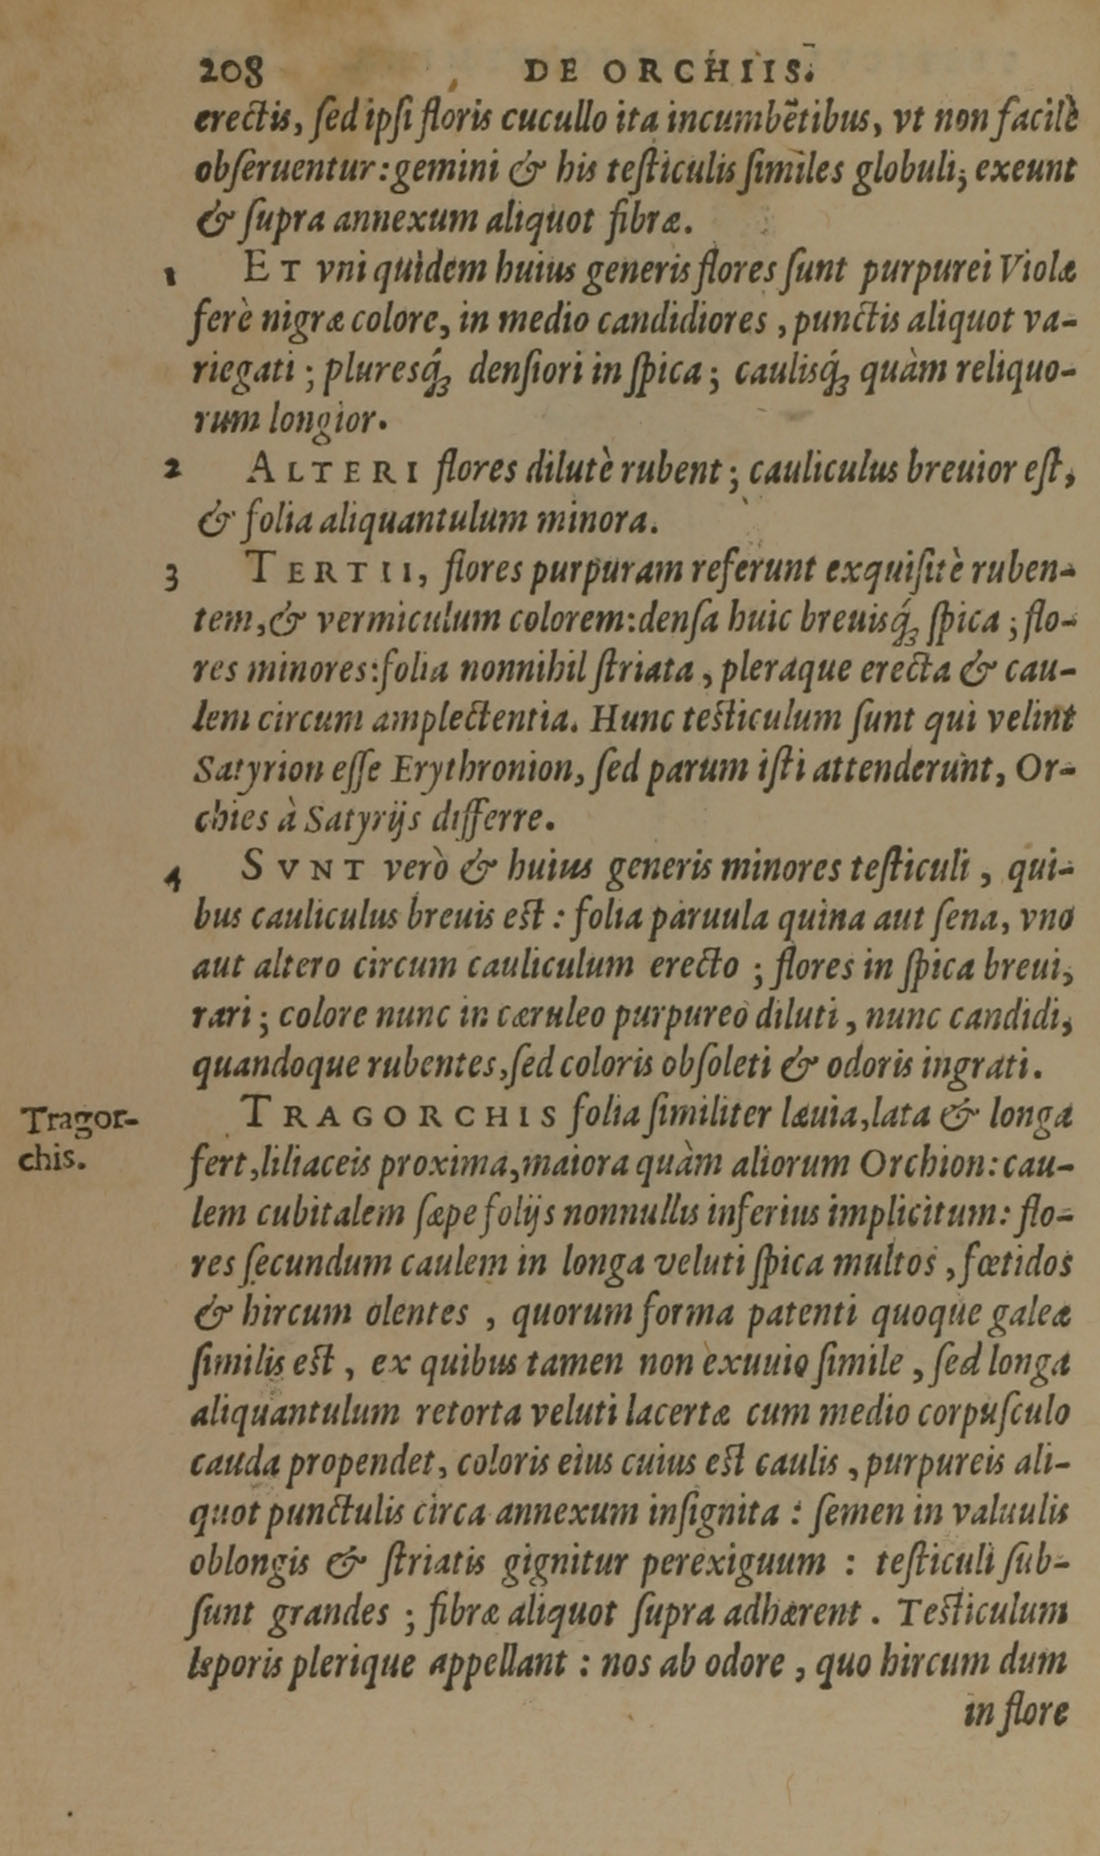 208 DE ORCHIIS.
erectis, ſed ipſi floris cucullo ita incumbẽtibus, vt non facilè
obſeruentur: gemini & his teſticulis ſimiles globuli, exeunt
& ſupra annexum aliquot fibræ.
1 ET vni quidem huius generis flores ſunt purpurei Violæ
ferè nigræ colore, in medio candidiores, punctis aliquot va-
riegati; pluresq́ꝫ denſiori in ſpica; caulisq́ꝫ quàm reliquo-
rum longior.
2 ALTERI flores dilutè rubent; cauliculus breuior eſt,
& folia aliquantulum minora.
3 TERTII, flores purpuram referunt exquiſitè ruben-
tem, & vermiculum colorem: denſa huic breuisq́ꝫ ſpica; flo-
res minores: folia nonnihil ſtriata, pleraque erecta & cau-
lem circum amplectentia. Hunc teſticulum ſunt qui velint
Satyrion eſſe Erythronion, ſed parum iſti attenderunt, Or-
chies à Satyrijs differre.
4 SVNT verò & huius generis minores teſticuli, qui-
bus cauliculus breuis eſt: folia paruula quina aut ſena, vno
aut altero circum cauliculum erecto; flores in ſpica breui,
rari; colore nunc in cæruleo purpureo diluti, nunc candidi,
quandoque rubentes, ſed coloris obſoleti & odoris ingrati.
Tragor-
chis.
TRAGORCHIS folia ſimiliter læuia, lata & longa
fert, liliaceis proxima, maiora quàm aliorum Orchion: cau-
lem cubitalem ſæpe folijs nonnullis inferius implicitum: flo-
res ſecundum caulem in longa veluti ſpica multos, fœtidos
& hircum olentes, quorum forma patenti quoque galeæ
ſimilis eſt, ex quibus tamen non exuuio ſimile, ſed longa
aliquantulum retorta veluti lacertæ cum medio corpuſculo
cauda propendet, coloris eius cuius eſt caulis, purpureis ali-
quot punctulis circa annexum inſignita: ſemen in valuulis
oblongis & ſtriatis gignitur perexiguum: teſticuli ſub-
ſunt grandes; fibræ aliquot ſupra adhærent. Teſticulum
leporis plerique appellant: nos ab odore, quo hircum dum
in flore